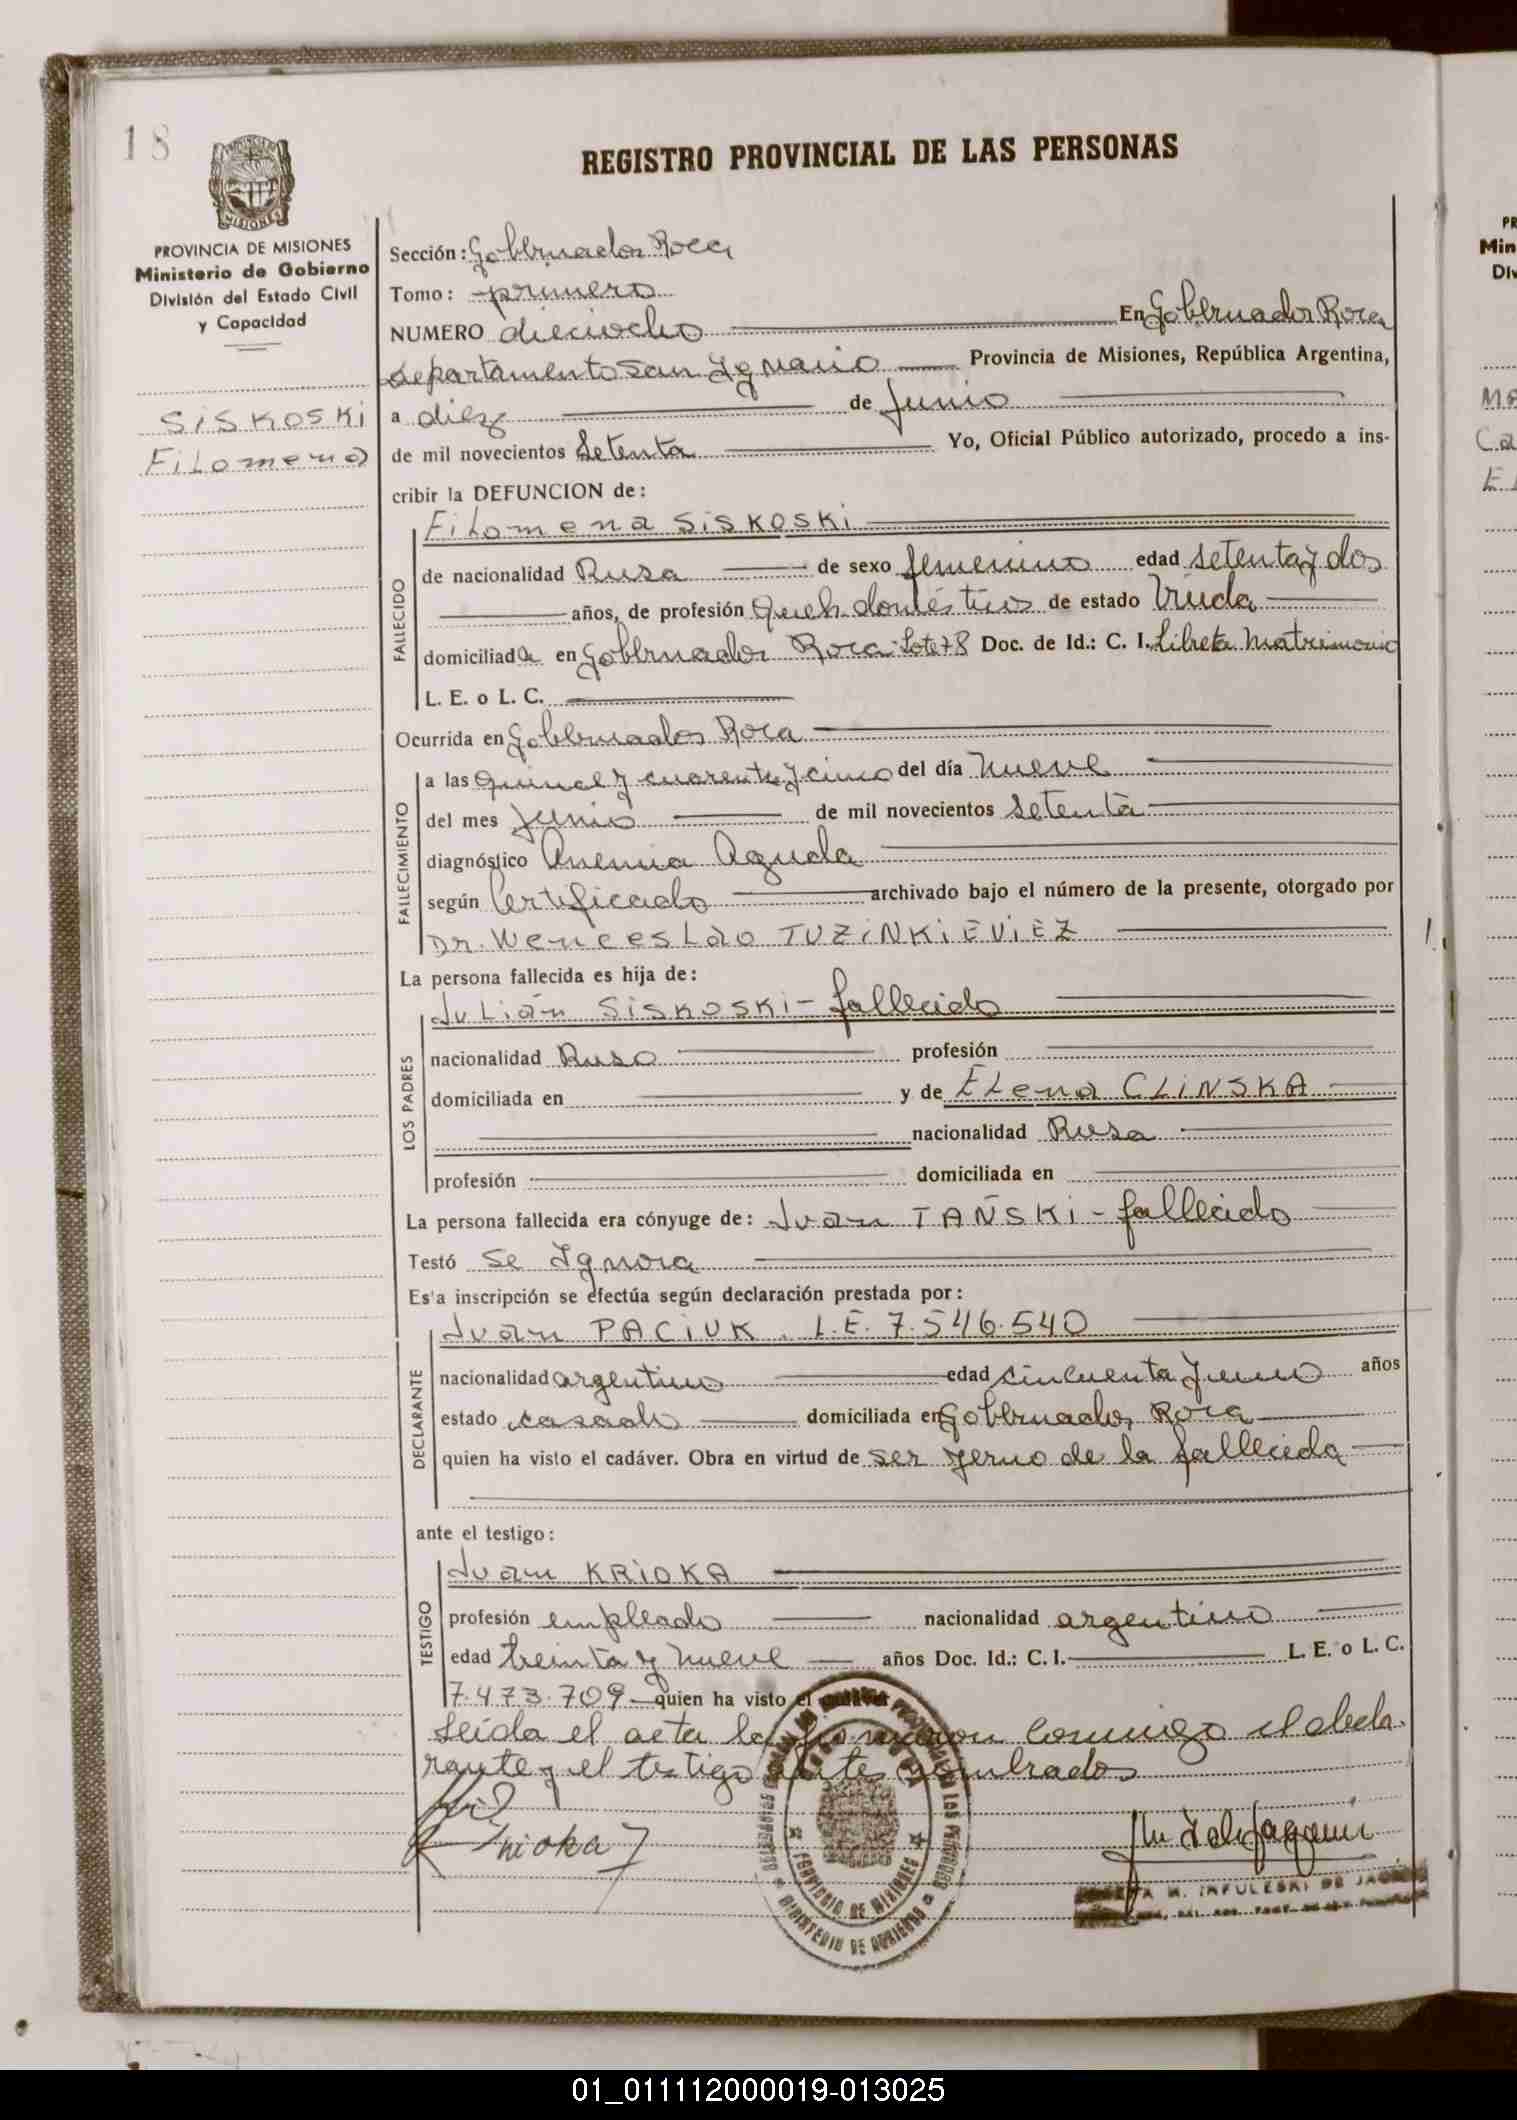 18
REGISTRO PROVINCIAL DE LAS PERSONAS
PROVINCIA DE MISIONES
Ministerio de Gobierno
División del Estado Civil
y Capacidad
SISKOSKI
Filomena
Sección: Gobernador Roca
Tomo: primero
NUMERO dieciocho En Gobernador Roca
departamento San Ignacio Provincia de Misiones, República Argentina,
a diez de Junio
de mil novecientos Setenta Yo, Oficial Público autorizado, procedo a ins-
cribir la DEFUNCION de:
FALLECIDO
Filomena SISKOSKI
de nacionalidad Rusa de sexo femenino edad setenta y dos
años, de profesión Queh. domésticos de estado Viuda
domiciliada en Gobernador Roca-Lote 78 Doc. de Id.: C. I. Libreta Matrimonio
L. E. o L. C.
Ocurrida en Gobernador Roca
FALLECIMIENTO
a las quince y cuarenta y cinco del día nueve
del mes Junio de mil novecientos setenta
diagnóstico Anemia Aguda
según Certificado archivado bajo el número de la presente, otorgado por
Dr. Wenceslao TUZINKIEVIEZ
La persona fallecida es hija de:
LOS PADRES
Julián SISKOSKI - fallecido
nacionalidad Ruso profesión
domiciliada en y de Elena CLINSKA
nacionalidad Rusa
profesión domiciliada en
La persona fallecida era cónyuge de: Juan TAÑSKI - fallecido
Testó se Ignora
Es'a inscripción se efectúa según declaración prestada por:
DECLARANTE
Juan PACIUK. L.E. 7.546.540
nacionalidad argentino edad cincuenta y uno años
estado casado domiciliada en Gobernador Roca
quien ha visto el cadáver. Obra en virtud de ser yerno de la fallecida
ante el testigo:
TESTIGO
Juan KRIOKA
profesión empleado nacionalidad argentino
edad treinta y nueve años Doc. Id.: C. I. L. E. o L. C.
7.473.709 quien ha visto el
Leída el acta la firmaron conmigo el decla-
rante y el testigo antes nombrados
Krioka
PROVINCIA DE MISIONES
MINISTERIO DE GOBIERNO
01_011112000019-013025